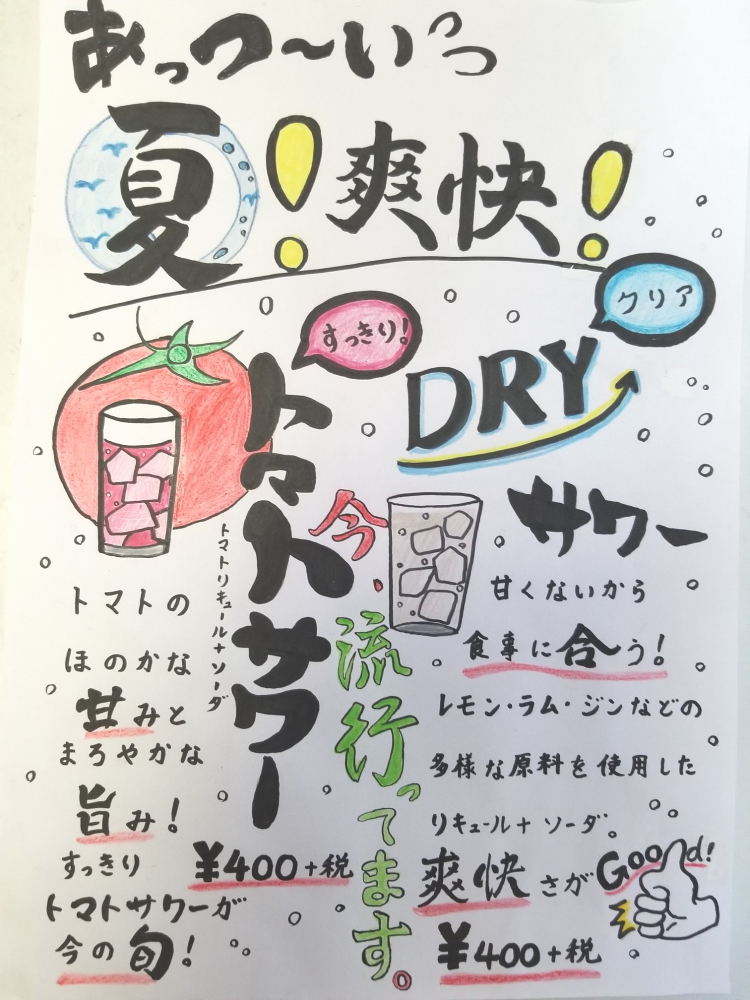 あっつ〜いっっ
夏!爽快!
すっきり!
クリア
トマトサワー
トマトリキュール+ソーダ
トマトの
ほのかな
甘みと
まろやかな
旨み!
すっきり
¥400+税
トマトサワーが
今の旬!
今、流行ってます。
DRY
サワー
甘くないから
食事に合う!
レモン・ラム・ジンなどの
多様な原料を使用した
リキュール+ソーダ。
爽快さが
Good!
¥400+税